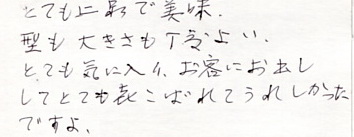 とても上品で美味.
型も大きさも丁度よい.
とても気に入り、お客にお出し
してとても喜こばれてうれしかった
ですよ.